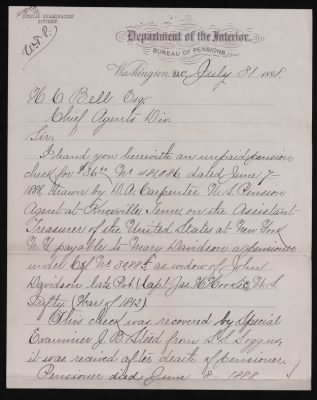 SPECIAL EXAMINATION
DIVISION.
Department of the Interior,
BUREAU OF PENSIONS,
Washington, D.C., July 31 1888.
H C Bell Esq
Chief Agents Div
Sir:
I hand you herewith an unpaid pension
check for $36 00 No 481,086, dated June 7
1888 drawn by D.A. Carpenter U S Pension
Agent at Knoxville Tenn, on the Assistant
Treasurer of the United States at New York
N.Y. payable to Mary Davidson a pensioner
under Ctf No as widow of John
Davidson late Pvt (Capt Jas H Hook Co, U.S.
Infty (War of 1812)
This check was recovered by Special
Examiner J. B. Steed from
it was received after death of pensioner.
Pensioner died June 8 1888